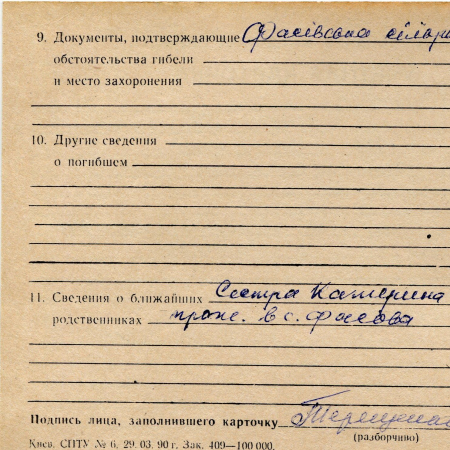 9. Документы, подтверждающие Фасівська сільр
обстоятельства гибели
и место захоронения
10. Другие сведения
о погибшем
11. Сведения о ближайших Сестра Катерина
родственниках прож. в с. Фасова
Подпись лица, заполнившего карточку
(разборчиво)
Киев. СПТУ № 6. 29. 03. 90 г. Зак. 409—100 000.